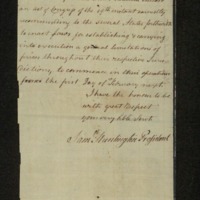 an act of Congress of the 29th instant earnestly
recommending to the several States forthwith
to enact Laws for establishing & carrying
into execution a general limitation of
prices throughout their respective Juris-
dictions, to commence in their operation
from the first Day of February next.
I have the honour to be
with great Respect
your humble Servt
Saml Huntington President